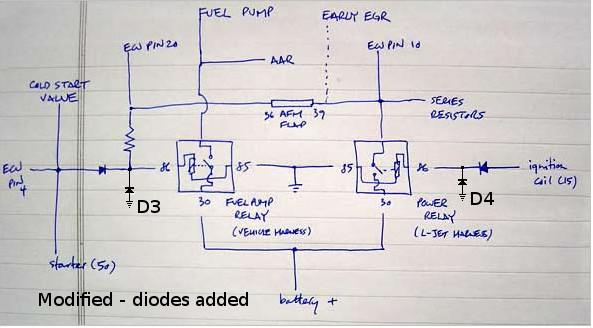 FUEL PUMP
EARLY EGR
ECU PIN 20
ECU PIN 10
AAR
COLD START
VALVE
36 AFM 39
FLAP
SERIES
RESISTORS
ECU
PIN
4
86
85
85
86
ignition
coil (15)
D3
D4
30
FUEL PUMP
RELAY
(VEHICLE HARNESS)
30
POWER
RELAY
(L-JET HARNESS)
starter (50)
Modified - diodes added
battery +